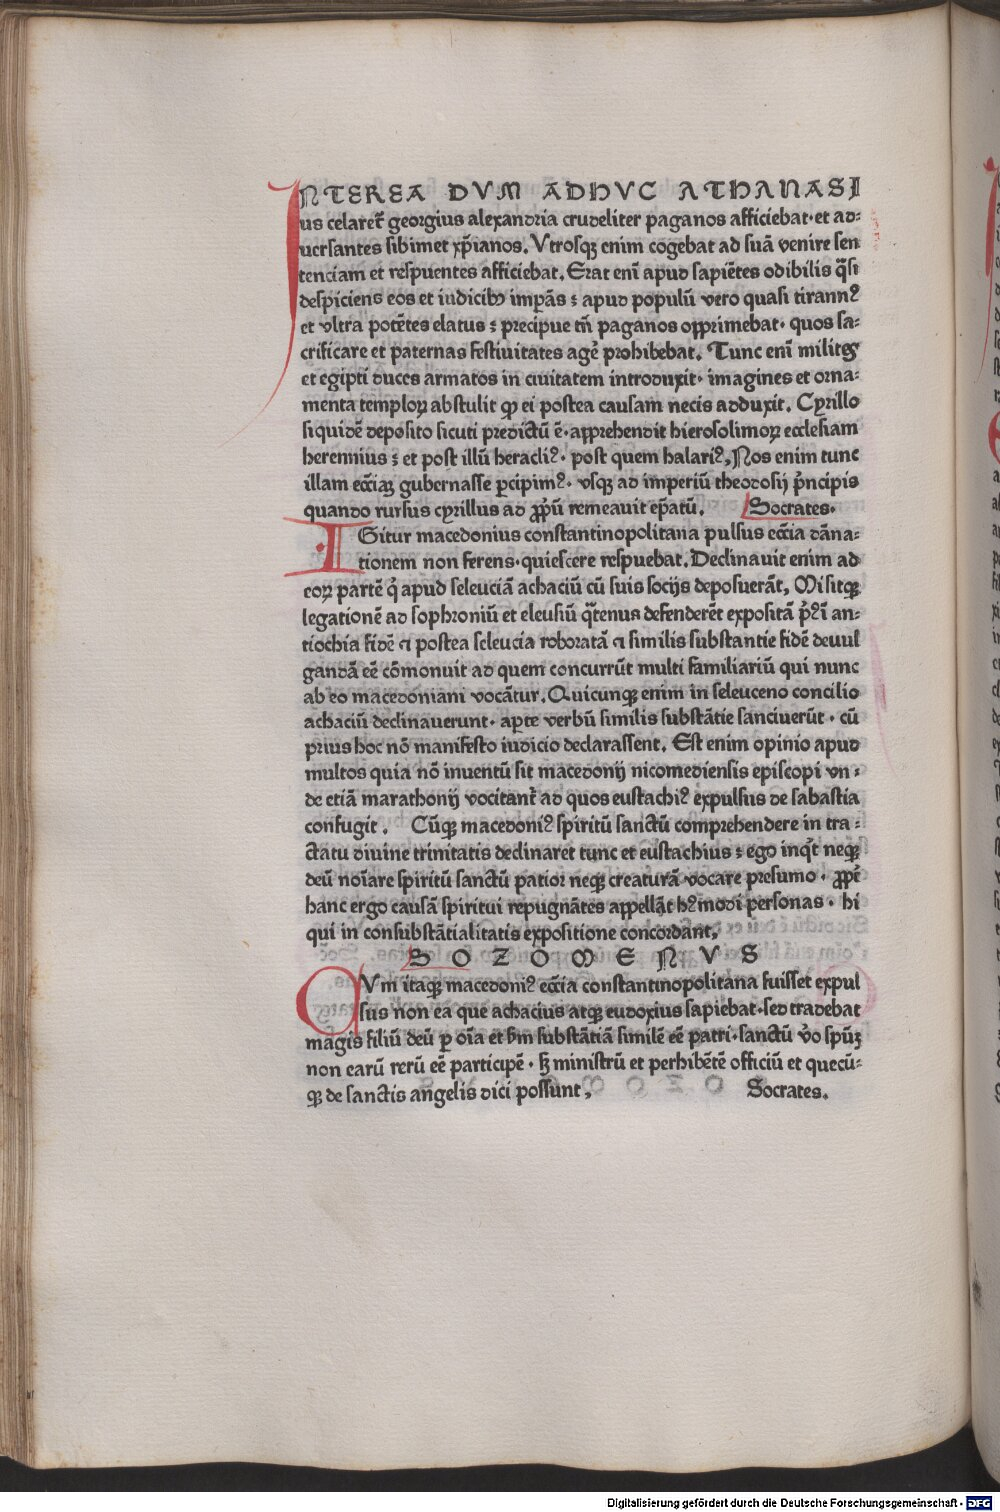 INTEREA DVM ADHVC ATHANASI
us celaret᷑ georgius alexandria crudeliter paganos afficiebat· et ad⸗
uersantes sibimet xp̄ianos. Vtrosqꝫ enim cogebat ad suā venire sen
tenciam et respuentes afficiebat. Erat eni᷑ apud sapiētes odibilis q̄si
despiciens eos et iudicibꝫ imp̄ans : apud populū vero quasi tirannꝰ
et vltra potētes elatus : precipue tn̄ paganos opprimebat· quos sa⸗
crificare et paternas festiuitates age᷑ prohibebat. Tunc eni᷑ milites
et egipti duces armatos in ciuitatem introduxit· imagines et orna⸗
menta temploꝝ abstulit ꝙ ei postea causam necis adduxit. Cyrillo
siquidē deposito sicuti predictū ē· apprehendit hierosolimoꝝ ecclesiam
herennius : et post illū heracliꝰ· post quem halariꝰ, Nos enim tunc
illam ecc̄iaꝫ gubernasse ꝑcipimꝰ· vsqꝫ ad imperiū theodosij p̄ncipis
quando rursus cyrillus ad ꝓpriū remeauit ep̄atū. Socrates·
IGitur macedonius constantinopolitana pulsus ecc̄ia dāna⸗
tionem non ferens· quiescere respuebat. Declinauit enim ad
eoꝝ partē q̇ apud seleuciā achaciū cū suis socijs deposuerāt, Misitqꝫ
legationē ad sophroniū et eleusiū q̄tenus defenderēt expositā p̄⁹i᷑ an⸗
tiochia fidē ⁊ postea seleucia roboratā ⁊ similis substantie fidē deuul
gandā eē cōmonuit ad quem concurrūt multi familiariū qui nunc
ab eo macedoniani vocātur. Quicunqꝫ enim in seleuceno concilio
achaciū declinauerunt· aꝑte verbū similis substātie sanciuerūt· cū
prius hoc nō manifesto iudicio declarassent. Est enim opinio apud
multos quia nō inuentū sit macedonij nicomediensis episcopi vn⸗
de etiā marathonij vocitant᷑ ad quos eustachiꝰ expulsus de sabastia
confugit. Cūqꝫ macedoniꝰ spiritū sanctū comprehendere in tra⸗
ctatu diuine trinitatis declinaret tunc et eustachius : ego inq̇t neqꝫ
deū noīare spiritū sanctū patior neqꝫ creaturā vocare presumo· ꝓpt᷑
hanc ergo causā spiritui repugnātes appellāt hꝰmodi personas· hi
qui in consubstātialitatis expositione concordant,
SOZOMENVS
CVm itaqꝫ macedoniꝰ ecc̄ia constantinopolitana fuisset expul
sus non ea que achacius atqꝫ eudoxius sapiebat· sed tradebat
magis filiū deū ꝑ oīa et ẜm substātiā similē eē patri· sanctū v̊o sp̄uꝫ
non earū rerū eē participē· sꝫ ministrū et perhibētē officiū et quecū⸗
qꝫ de sanctis angelis dici possunt, Socrates.
Digitalisierung gefördert durch die Deutsche Forschungsgemeinschaft - DFG